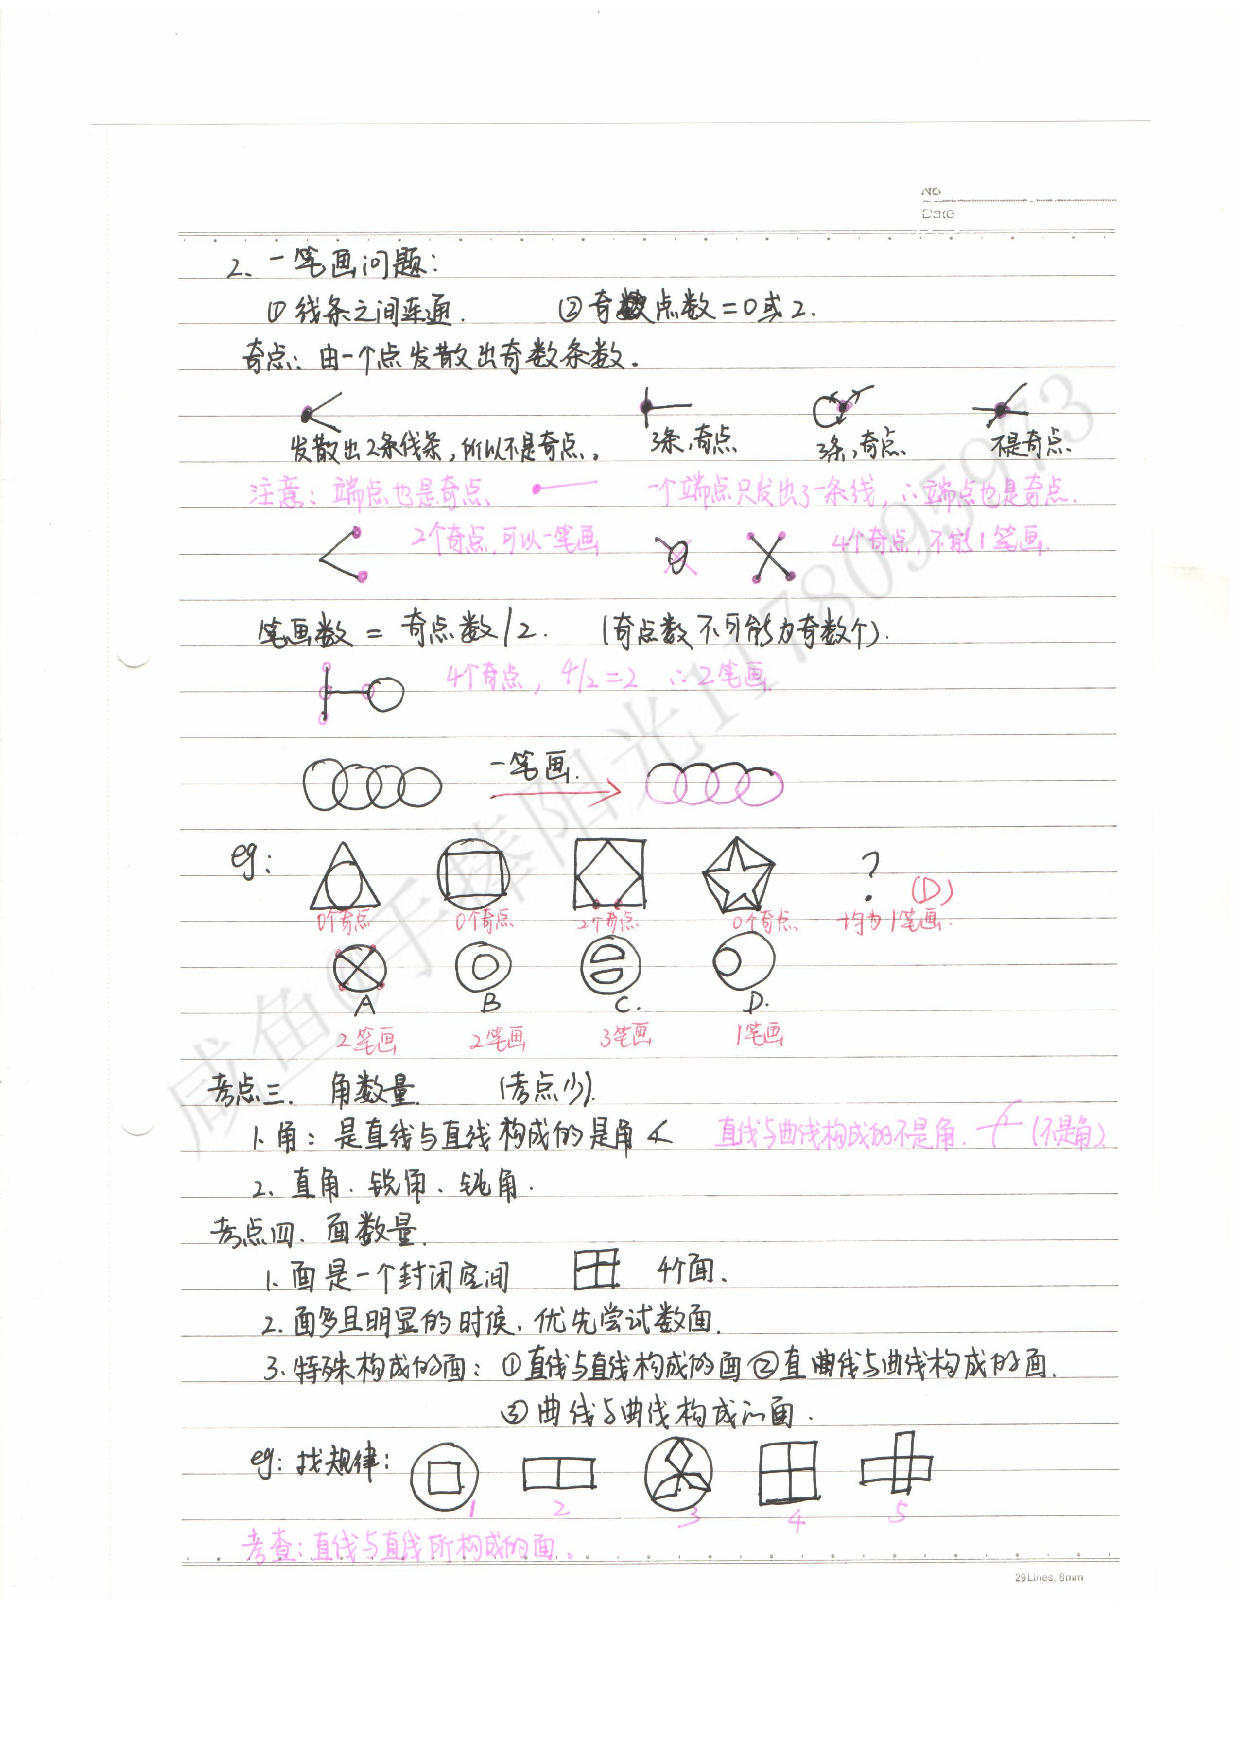 No
Date
2、一笔画问题:
① 线条之间连通. ② 奇数点数=0或2.
奇点:由一个点发散出奇数条数。
发散出2条线条,所以不是奇点。 3条,奇点 3条,奇点 不是奇点
注意:端点也是奇点 一个端点只发出了一条线,∴端点也是奇点.
2个奇点,可以一笔画 4个奇点,不能1笔画
笔画数=奇点数/2. (奇点数不可能为奇数个).
4个奇点, 4/2=2 ∴2笔画
一笔画.
eg: ? (D)
0个奇点 0个奇点 2个奇点 0个奇点 均为1笔画.
A B C. D.
2笔画 2笔画 3笔画 1笔画
考点三. 角数量 (考点少).
1.角:是直线与直线构成的是角 直线与曲线构成的不是角. (不是角)
2、直角、锐角、钝角.
考点四. 面数量.
1.面是一个封闭空间 4个面.
2.面多且明显的时候,优先尝试数面.
3.特殊构成的面:①直线与直线构成的面②直曲线与曲线构成的面.
③曲线与曲线构成的面.
eg:找规律:
1 2 3 4 5
考查:直线与直线所构成的面。
29Lines. 6mm
咸鱼@手捧阳光1178095973